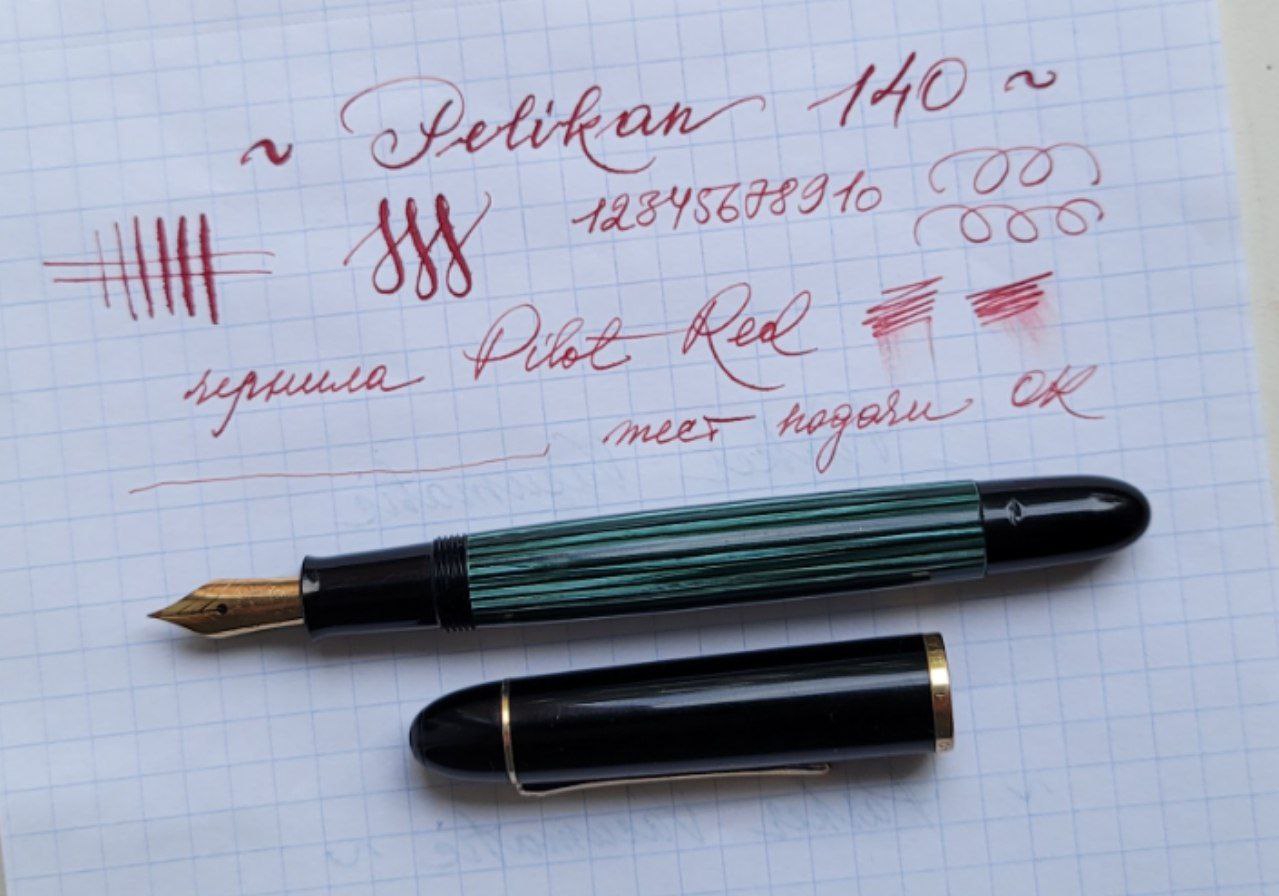 ~ Pelikan 140 ~
12345678910
чернила Pilot Red
тест подачи OK